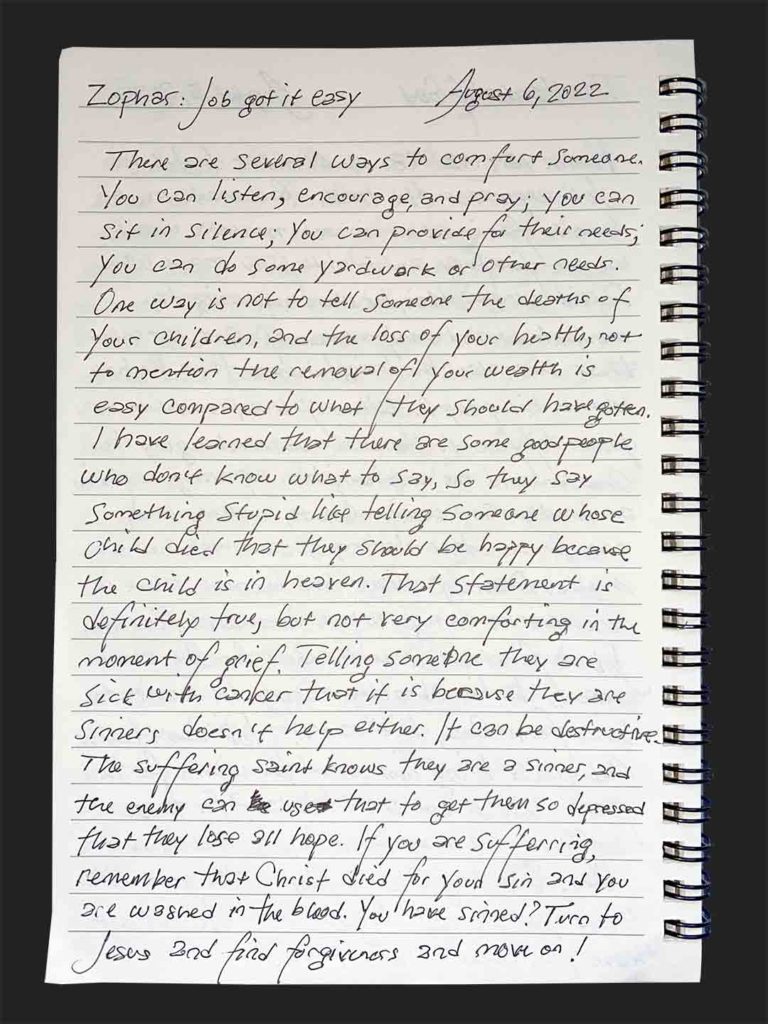 Zophar: Job got it easy August 6, 2022
There are several ways to comfort someone.
You can listen, encourage, and pray; you can
sit in silence; you can provide for their needs;
you can do some yardwork or other needs.
One way is not to tell someone the deaths of
your children, and the loss of your health, not
to mention the removal of your wealth is
easy compared to what they should have gotten.
I have learned that there are some good people
who don't know what to say, so they say
something stupid like telling someone whose
child died that they should be happy because
the child is in heaven. That statement is
definitely true, but not very comforting in the
moment of grief. Telling someone they are
sick with cancer that it is because they are
sinners doesn't help either. It can be destructive.
The suffering saint knows they are a sinner, and
the enemy can use that to get them so depressed
that they lose all hope. If you are sufferring,
remember that Christ died for your sin and you
are washed in the blood. You have sinned? Turn to
Jesus and find forgiveness and move on!